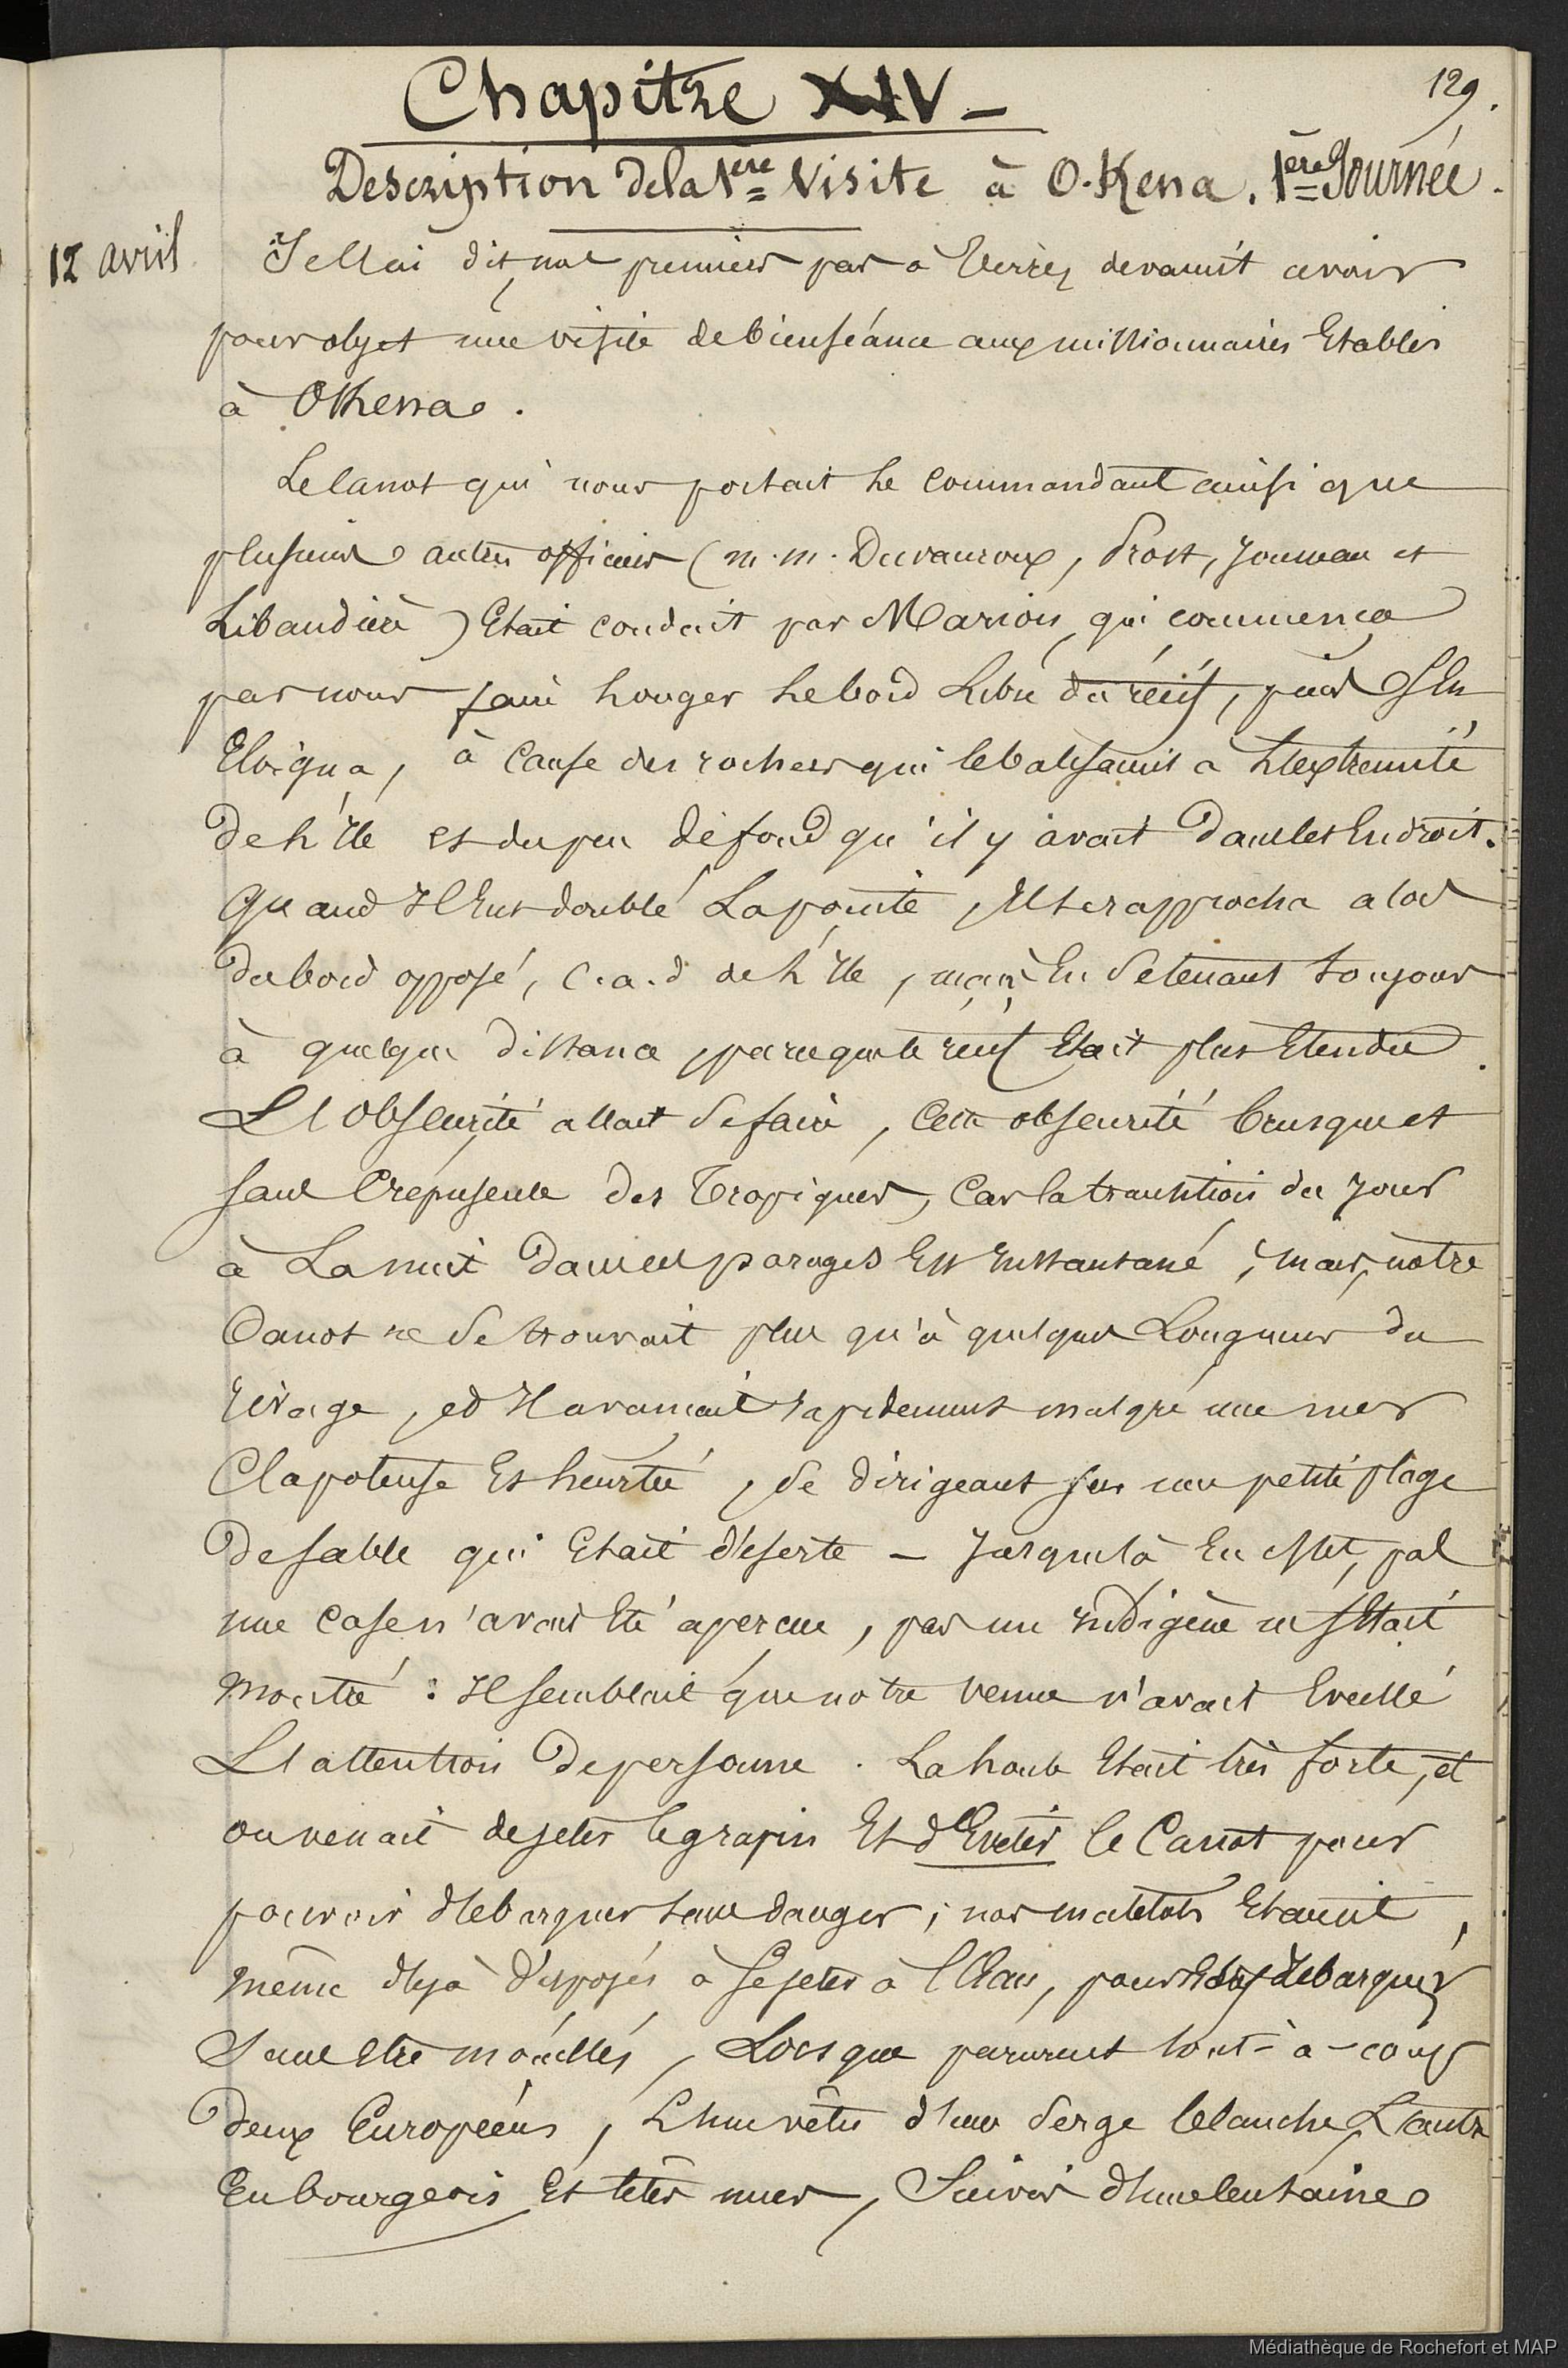 129.
Chapitre XIV -
Description de la 1ère Visite à O. Kena. 1ère Journée.
12 avril
Je l'ai dit, nos premiers pas à terre, devaient avoir
pour objet une visite de bienséance aux missionnaires Etablis
à OKena.
Le Canot qui nous portait le Commandant ainsi que
plusieurs autres officiers (m.m. Duvauroux, Prost, Jouneau et
Libaudière) Etait conduit par Marion, qui commença
par nous faire longer le bord Libre du récif, puis s'En
Eloigna, à Cause des rochers qui le balisaient à l'extremité
de l'Ile et du peu de fond qu'il y avait dans cet Endroit.
Quand Il Eut doublé La pointe, Il se rapprocha alors
du bord opposé, c.a.d de l'Ile, mais En se tenant toujours
à quelque distance, parce que le récif Etait plus Etendu.
L'obscurité allait se faire, Cette obscurité brusque et
sans Crépuscule des Tropiques, Car la transition du jour
à La nuit Dans ces parages Est Instantané ; mais, notre
Canot ne se trouvait plus qu'à quelques Longueurs du
rivage, et Il avançait rapidement malgré une mer
Clapoteuse Et heurtée, se dirigeant sur une petite plage
de sable qui Etait déserte - Jusque là En effet, pas
une case n'avait Eté aperçue, pas un Indigène ne s'Etait
montré : Il semblait que notre venue n'avait Eveillé
L'attention de personne. La houle Etait très forte, et
on venait de jeter le grapin Et d'Eviter le Canot pour
pouvoir débarquer sans danger ; nos matelots Etaient
même déjà disposés à se jeter à l'Eau, pour débarquer
Sans être mouillés, Lorsque parurent tout-à-coup
deux Européens, L'un vêtu d'une serge blanche, L'autre
En bourgeois Et têtes nues, Suivis d'une centaine
Médiathèque de Rochefort et MAP